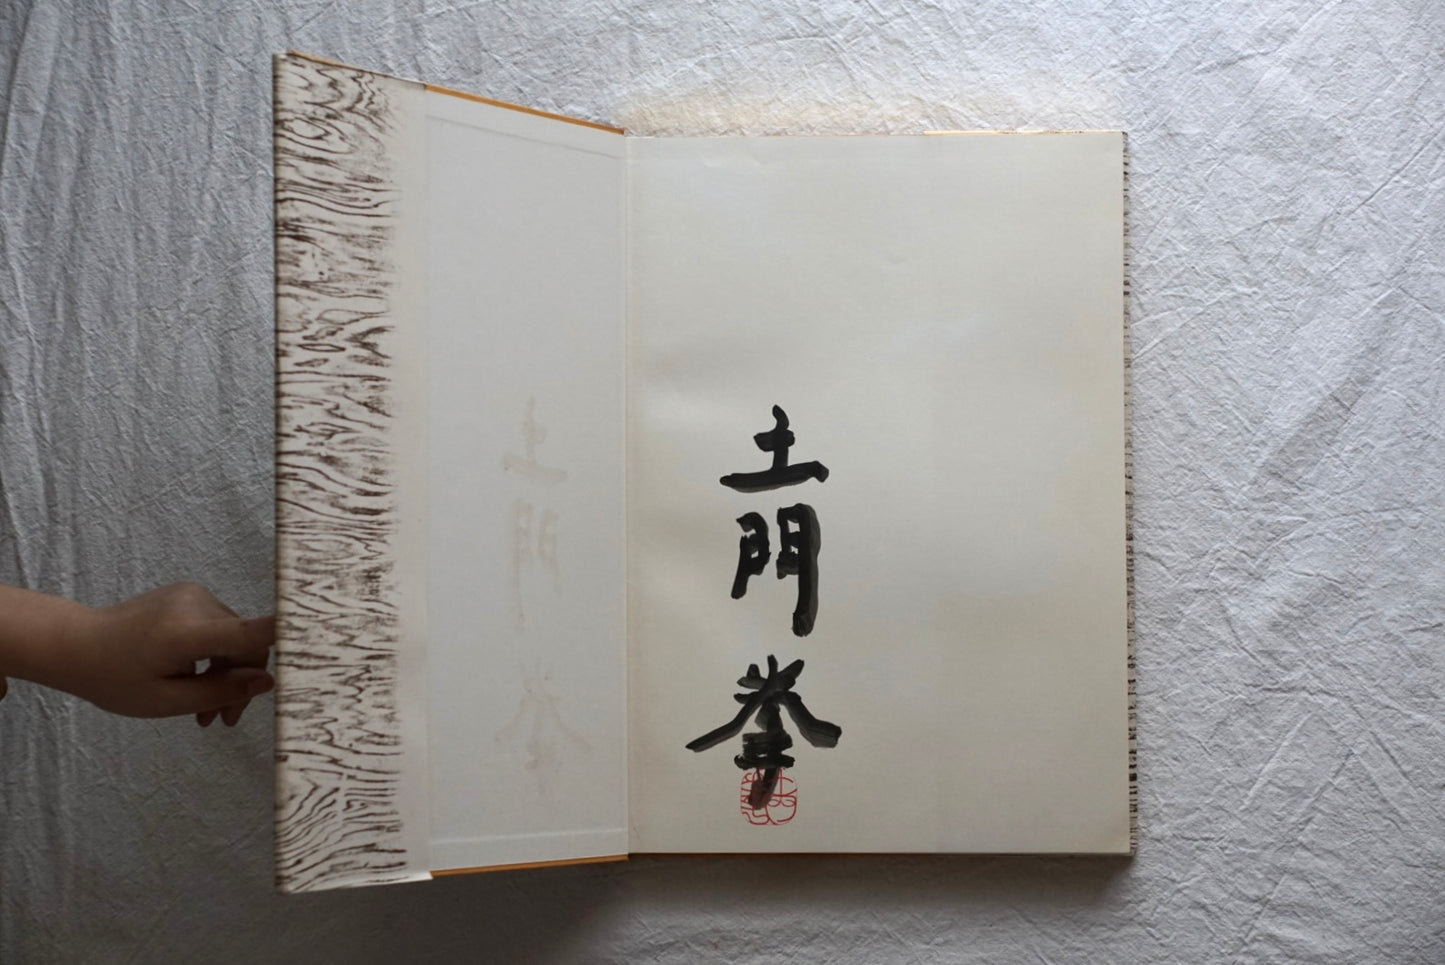 土門拳